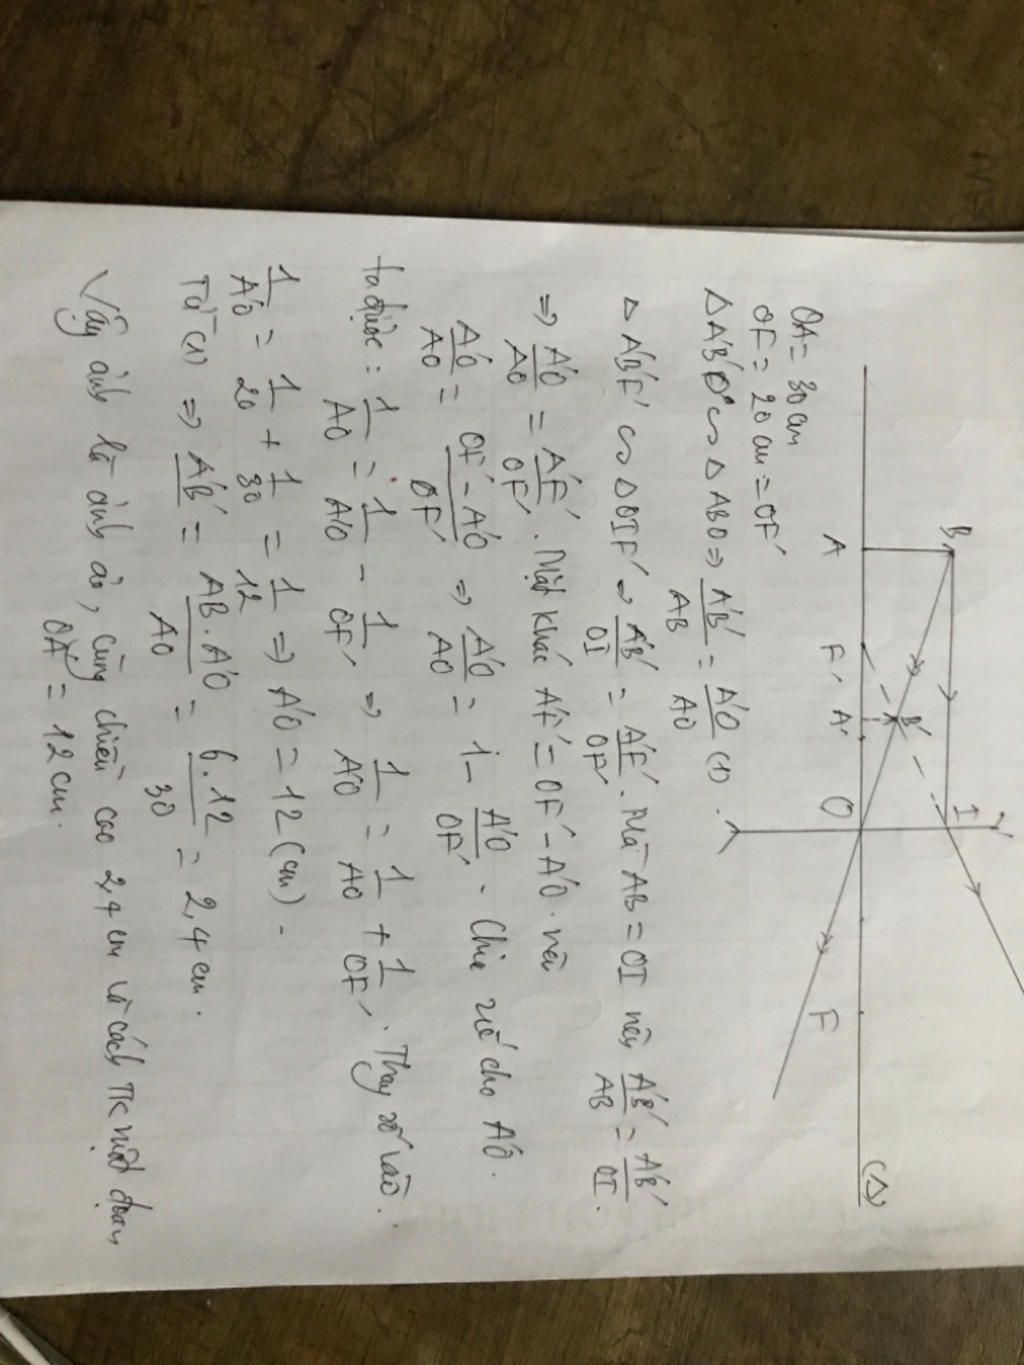 B
I
B'
A
F'
A'
O
F
(Δ)
OA = 30 cm
OF = 20 cm = OF'
Δ A'B'O ∽ Δ ABO ⇒ A'B'/AB = A'O/AO (1).
Δ A'B'F' ∽ Δ OIF' ⇒ A'B'/OI = A'F'/OF'. Mà AB = OI nên A'B'/AB = A'B'/OI.
⇒ A'O/AO = A'F'/OF'. Mặt khác A'F' = OF' - A'O. nên
A'O/AO = OF' - A'O/OF' ⇒ A'O/AO = 1 - A'O/OF'. Chia vế cho A'O.
ta được: 1/AO = 1/A'O - 1/OF' ⇒ 1/A'O = 1/AO + 1/OF'. Thay số vào.
1/A'O = 1/20 + 1/30 = 1/12 ⇒ A'O = 12 (cm) -
Từ (1) ⇒ A'B' = AB.A'O/AO = 6.12/30 = 2,4 cm.
Vậy ảnh là ảnh ảo, cùng chiều cao 2,4 cm và cách TK một đoạn
OA' = 12 cm.